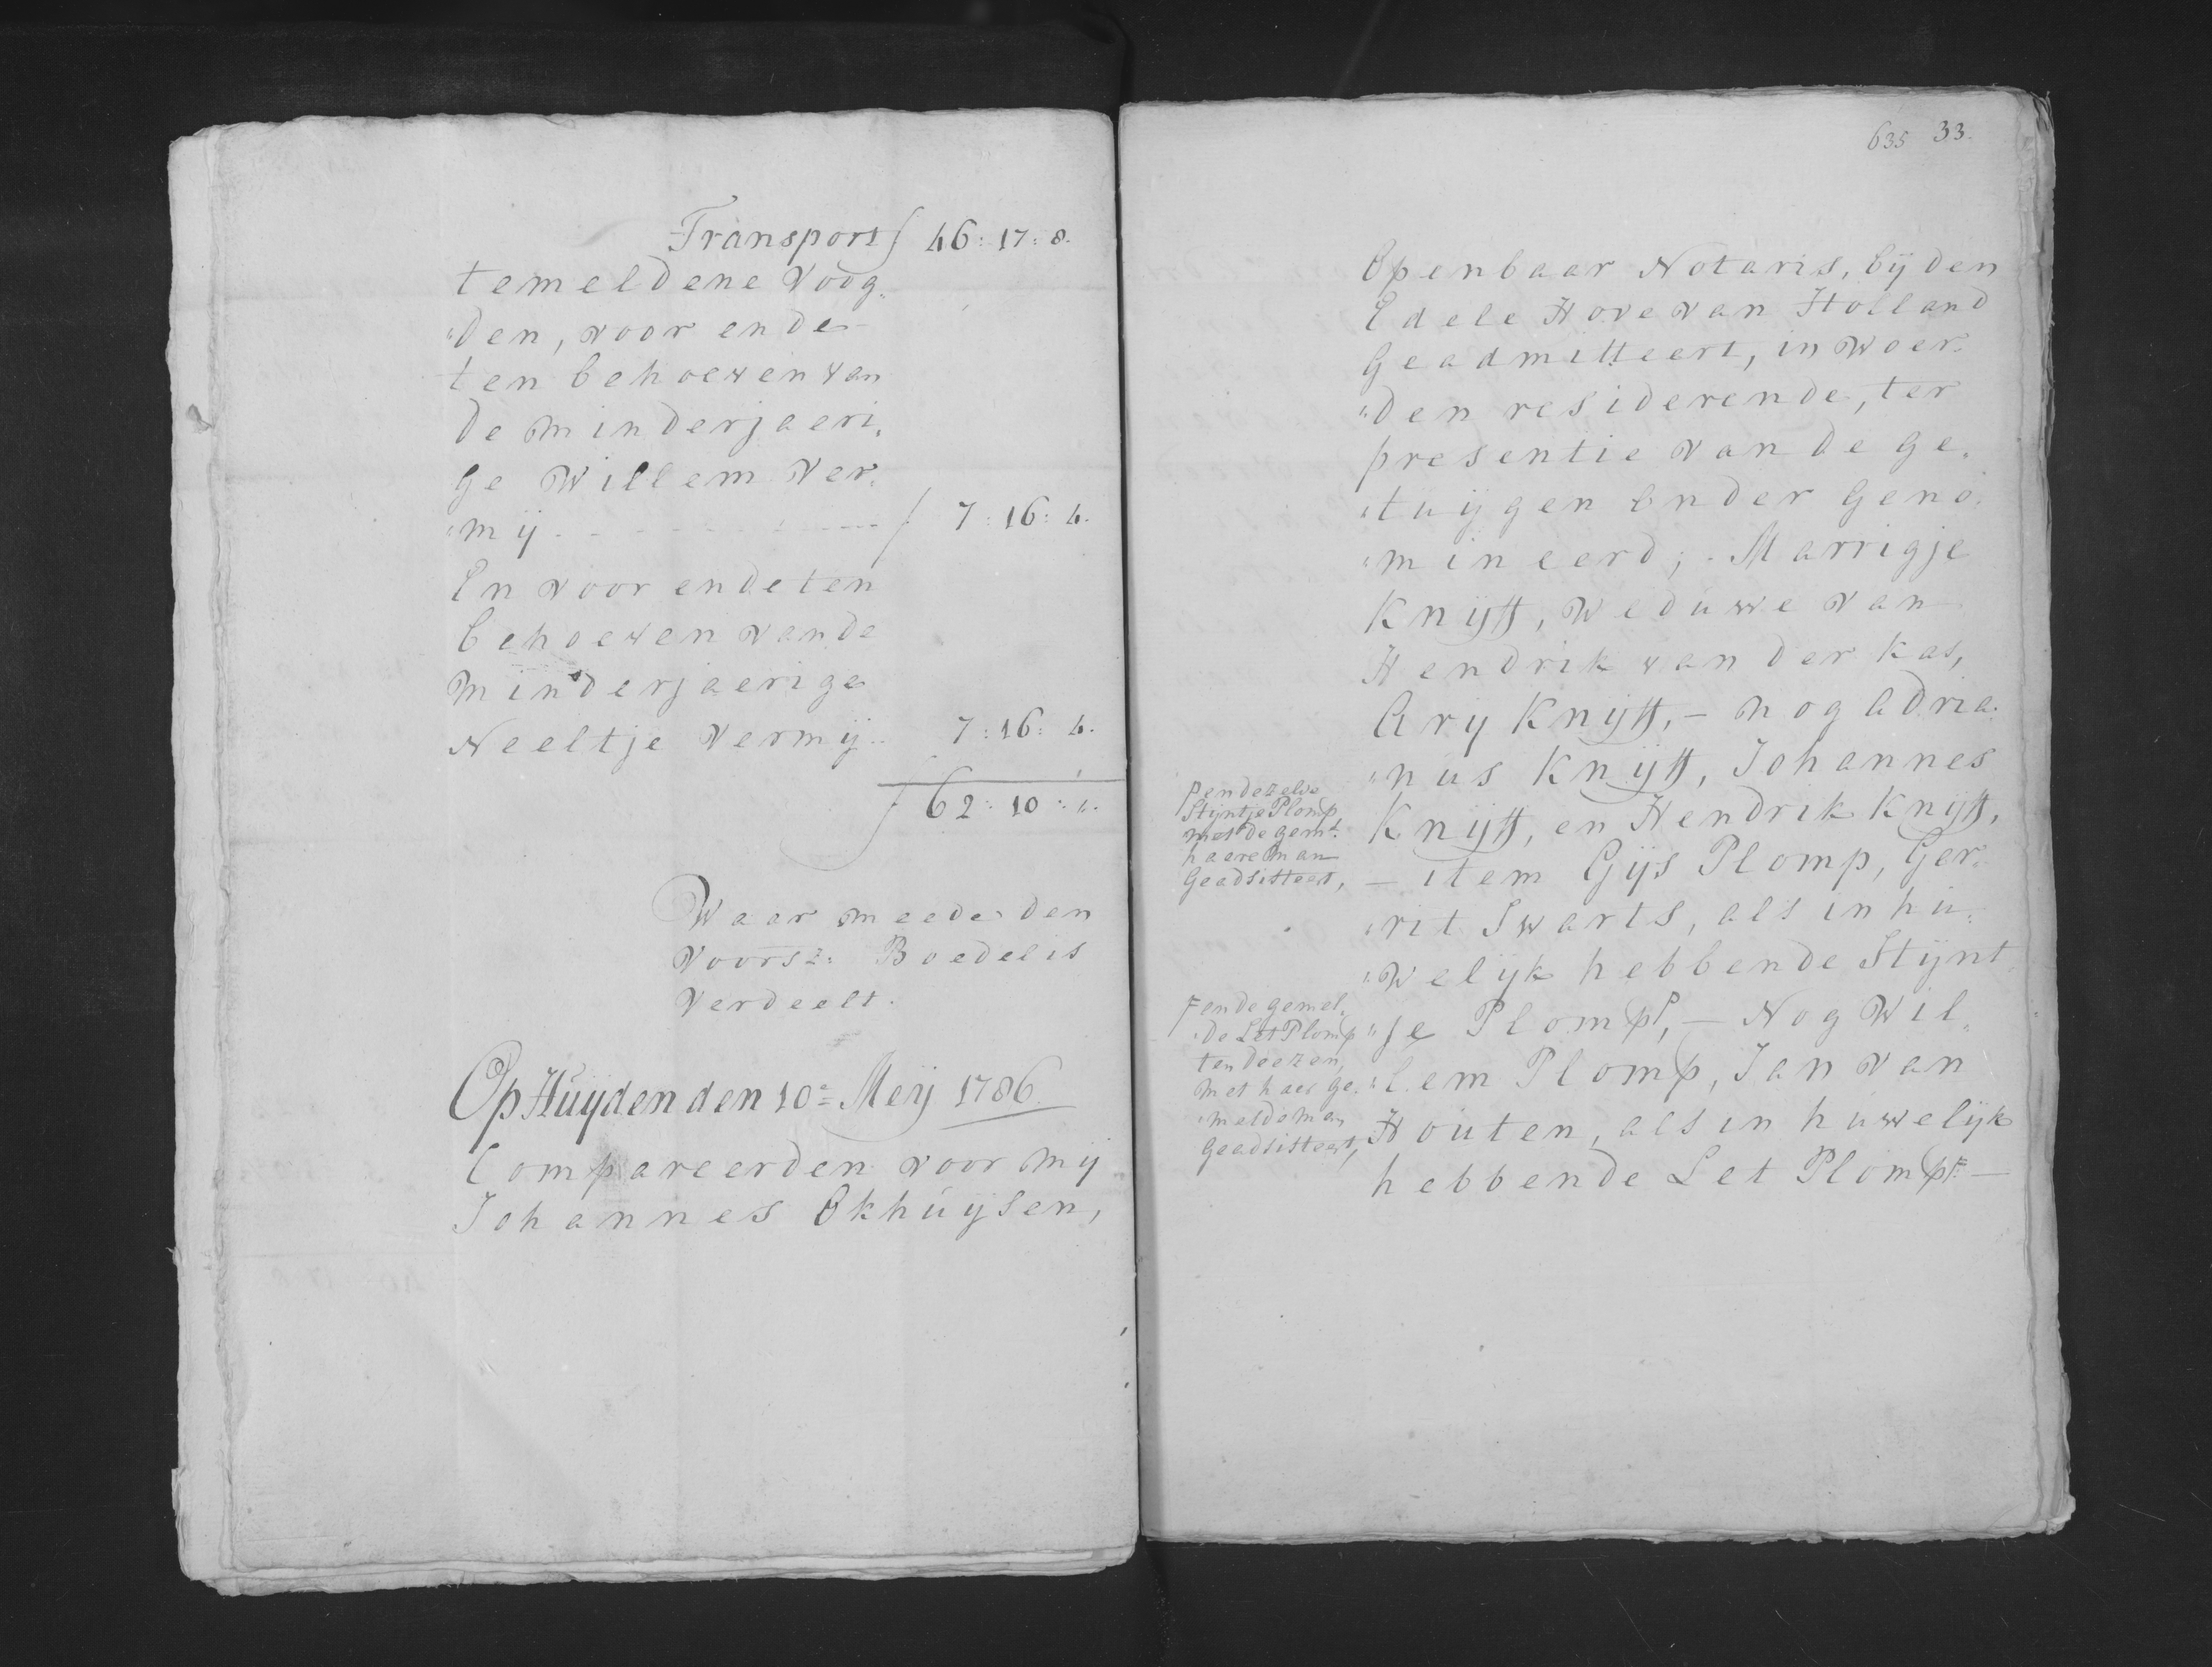 Transport f 46:17:8.
temeldene Voog„
„den, voor ende
ten behoeven van
de minderjaeri„
ge Willem Ver„
„mij - - - - - - f 7:16:4.
En voor ende ten
behoeven van de
minderjaerige
Neeltje Vermij.. 7:16:4.
f 62:10:„.
Waar meede den
voorsz: Boedel is
verdeelt.
Op Huyden den 10e Meij 1786.
Compareerden voor mij
Johannes Okhuijsen,
635 33.
Openbaar Notaris, bij den
Edele Hove van Holland
Geadmitteert, in Woer„
„den residerende, ter
presentie van de ge„
„tuijgen onder Geno„
„mineerd; Marrigje
Knijff, Weduwe van
Hendrik van der Kas,
Arij Knijff, - nog Adria„
„nus Knijff, Johannes
Knijff, en Hendrik Knijff,
— item Gijs Plomp, Ger„
„rit Swarts, als in hu„
„welijk hebbende Stijnt„
„je Plomp P, — Nog Wil„
„lem Plomp, Jan van
Houten, als in huwelijk
hebbende Let Plomp F —
P en dezelve
Stijntje Plomp
met de gemt.
haare man
Geadsisteert,
F en de gemel„
„de Let Plomp
ten deezen,
met haer ge„
„melde man
Geadsisteert,